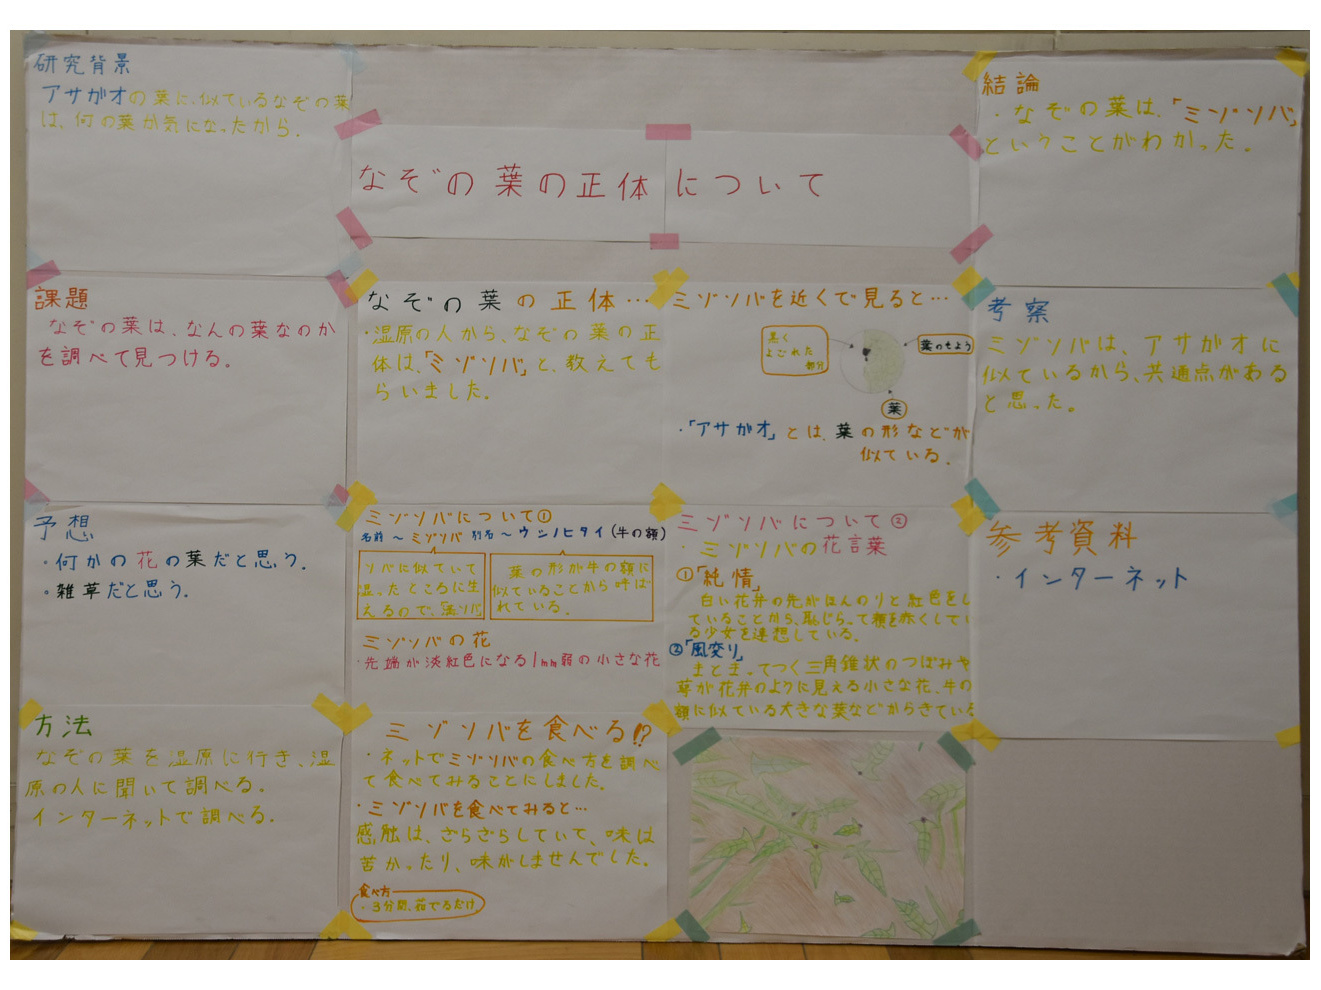 研究背景
アサガオの葉に、似ているなぞの葉
は、何の葉か気になったから.
なぞの葉の正体について
結論
・なぞの葉は、「ミゾソバ」
ということがわかった.
課題
なぞの葉は、なんの葉なのか
を調べて見つける.
なぞの葉の正体…
・湿原の人から、なぞの葉の正
体は、「ミゾソバ」と、教えても
らいました.
ミゾソバを近くで見ると…
黒く
よごれた
部分
葉のもよう
葉
・「アサガオ」とは、葉の形などが
似ている.
考察
ミゾソバは、アサガオに
似ているから、共通点がある
と思った。
予想
・何かの花の葉だと思う.
・雑草だと思う.
ミゾソバについて①
名前～ミゾソバ 別名～ウシノヒタイ(牛の額)
ソバに似ていて
湿ったところに生
えるので、溝ソバ
葉の形が牛の額に
似ていることから呼ば
れている.
ミゾソバの花
・先端が淡紅色になる1mm弱の小さな花
ミゾソバについて②
・ミゾソバの花言葉
①「純情」
白い花弁の先がほんのりと紅色をし
ていることから、恥じらって頬を赤くしてい
る少女を連想している.
②「風変り」
まとまってつく三角錐状のつぼみや
萼が花弁のように見える小さな花、牛の
額に似ている大きな葉などからきている
参考資料
・インターネット
方法
なぞの葉を湿原に行き、湿
原の人に聞いて調べる.
インターネットで調べる.
ミゾソバを食べる!?
・ネットでミゾソバの食べ方を調べ
て食べてみることにしました.
・ミゾソバを食べてみると…
感触は、ざらざらしていて、味は
苦かったり、味がしませんでした.
食べ方
・3分間、茹でるだけ